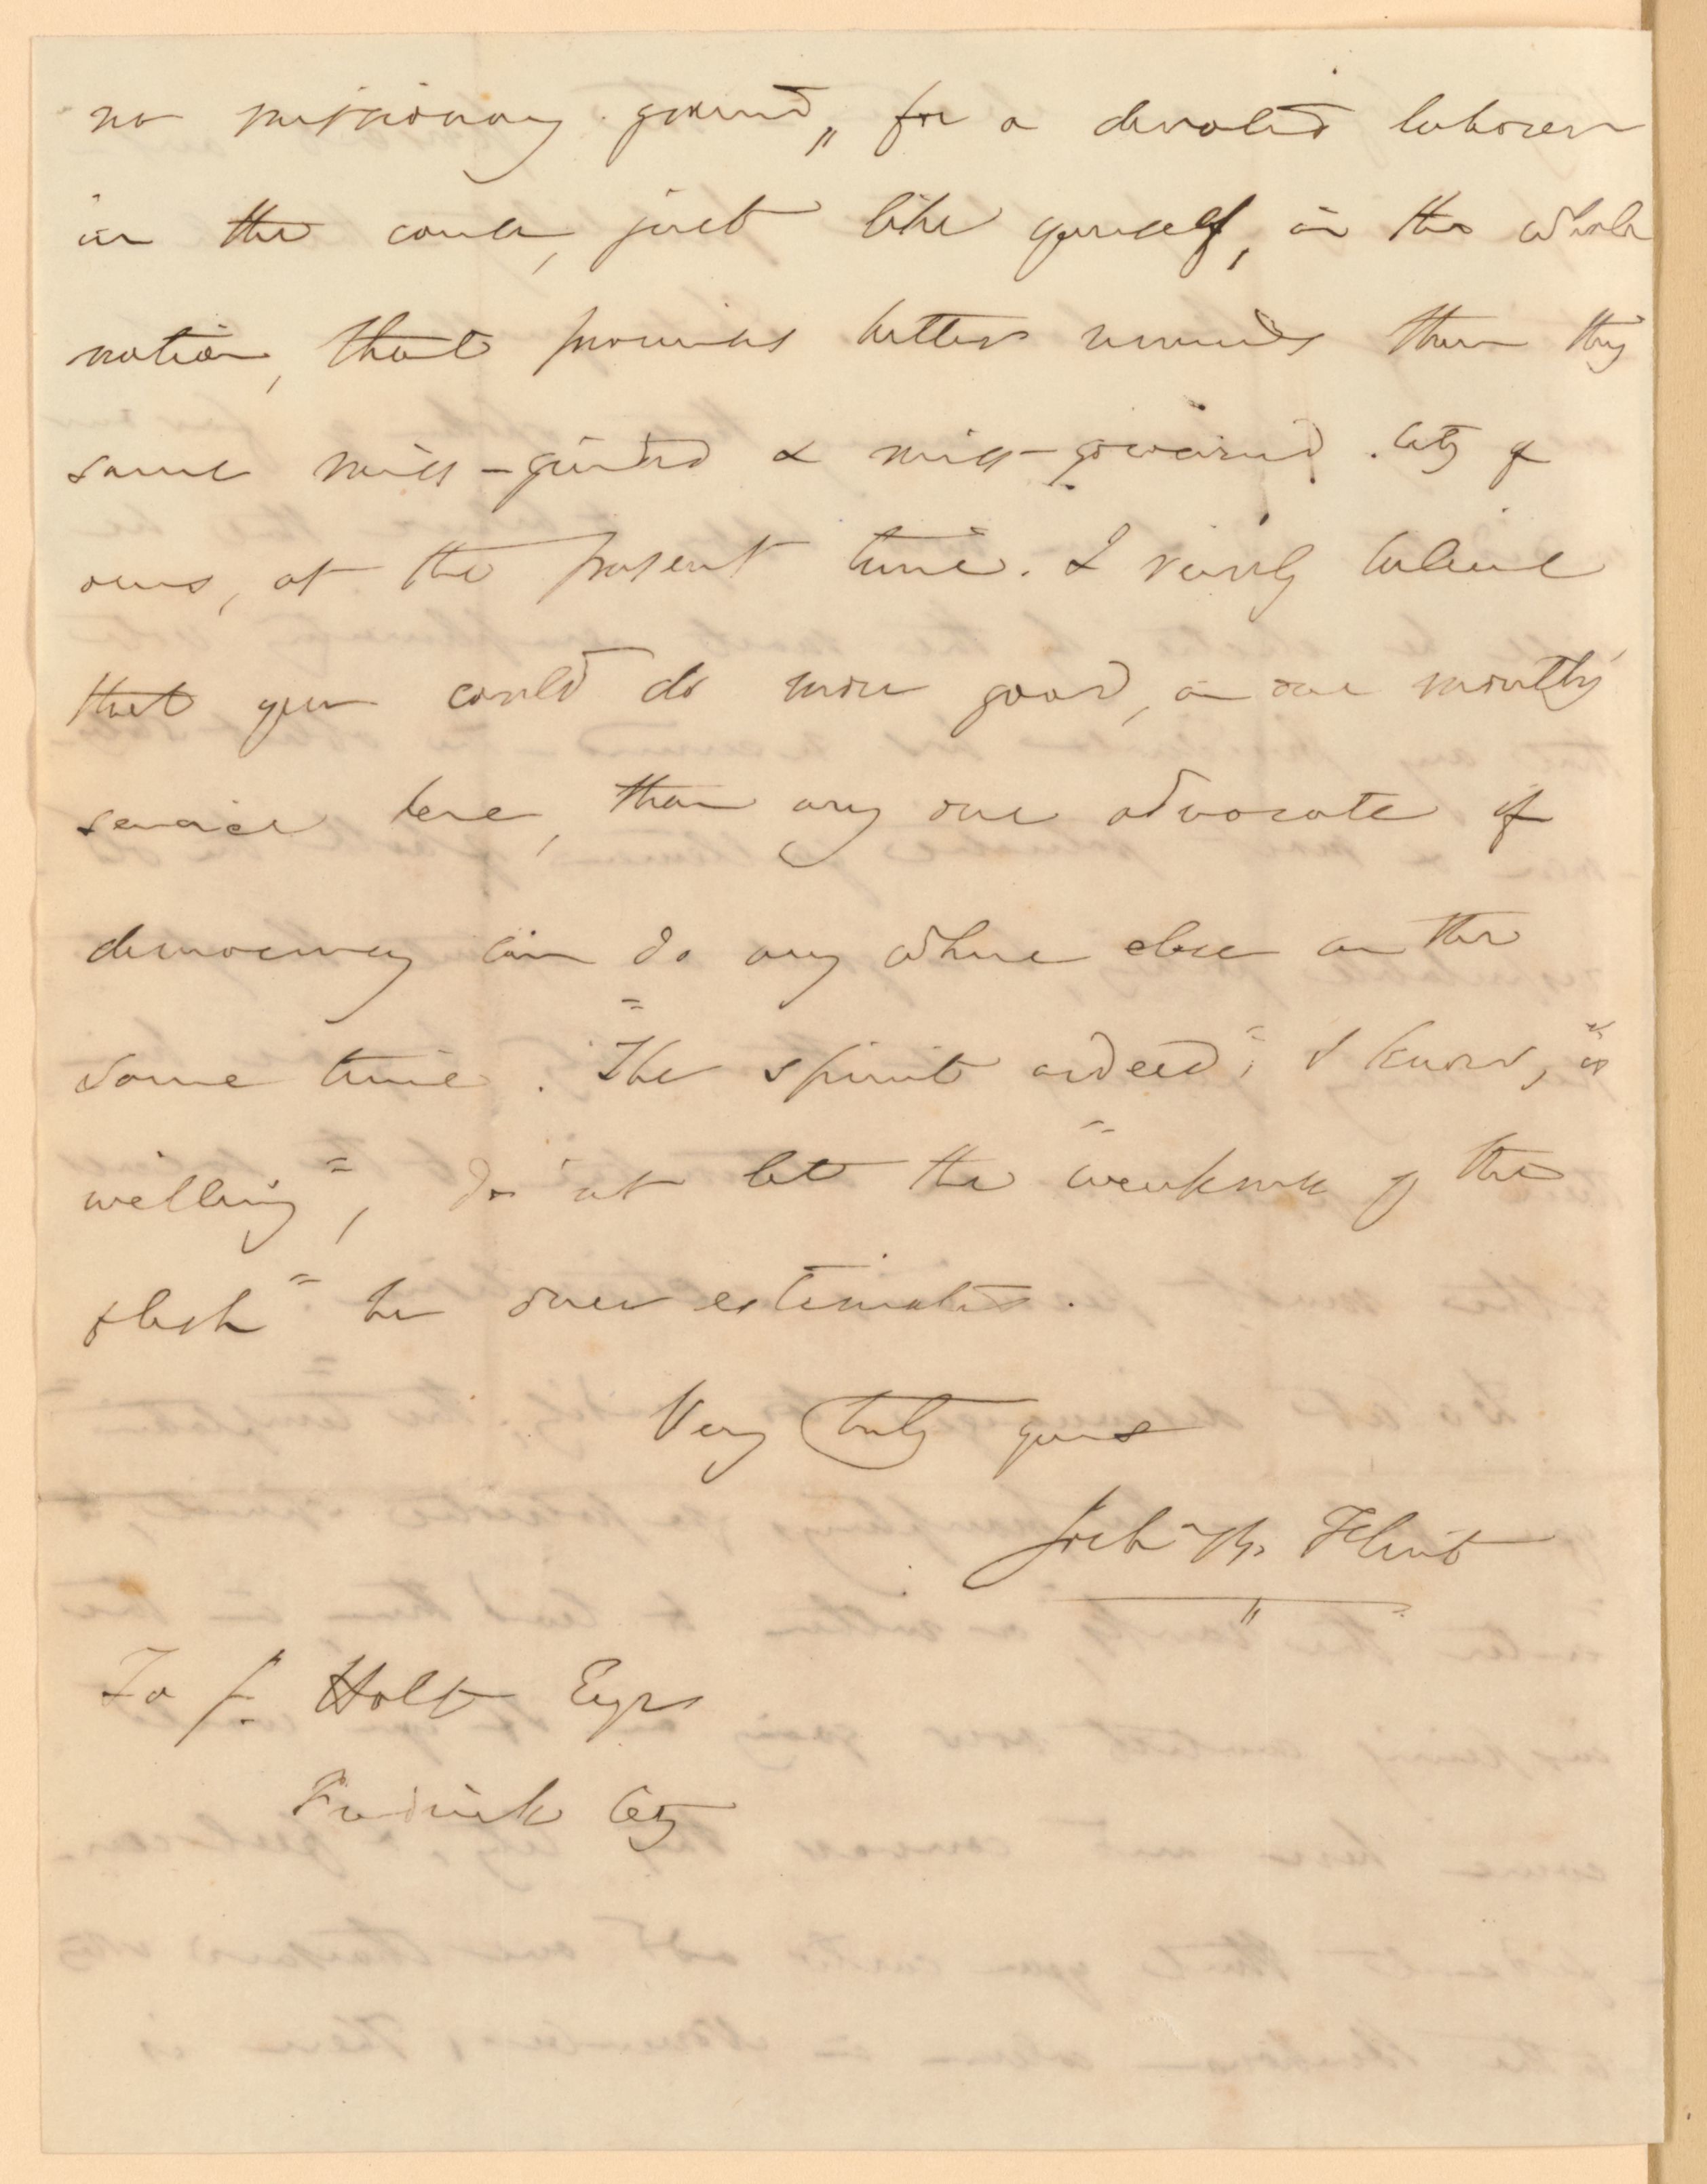 no missionary ground, for a devoted laborer
in the cause, just like yourself, in the whole
nation, that promises better rewards than this
same miss-guided & miss-governed city of
ours, at the present time. I verily believe
that you could do more good, in one month's
service here, than any one advocate of
democracy can do any where else in the
same time. "The spirit indeed", I know, "is
willing", do not let the "weakness of the
flesh" be over estimated.
Very truly yours
Flint
To J. Holt Esqr
Fredrick City